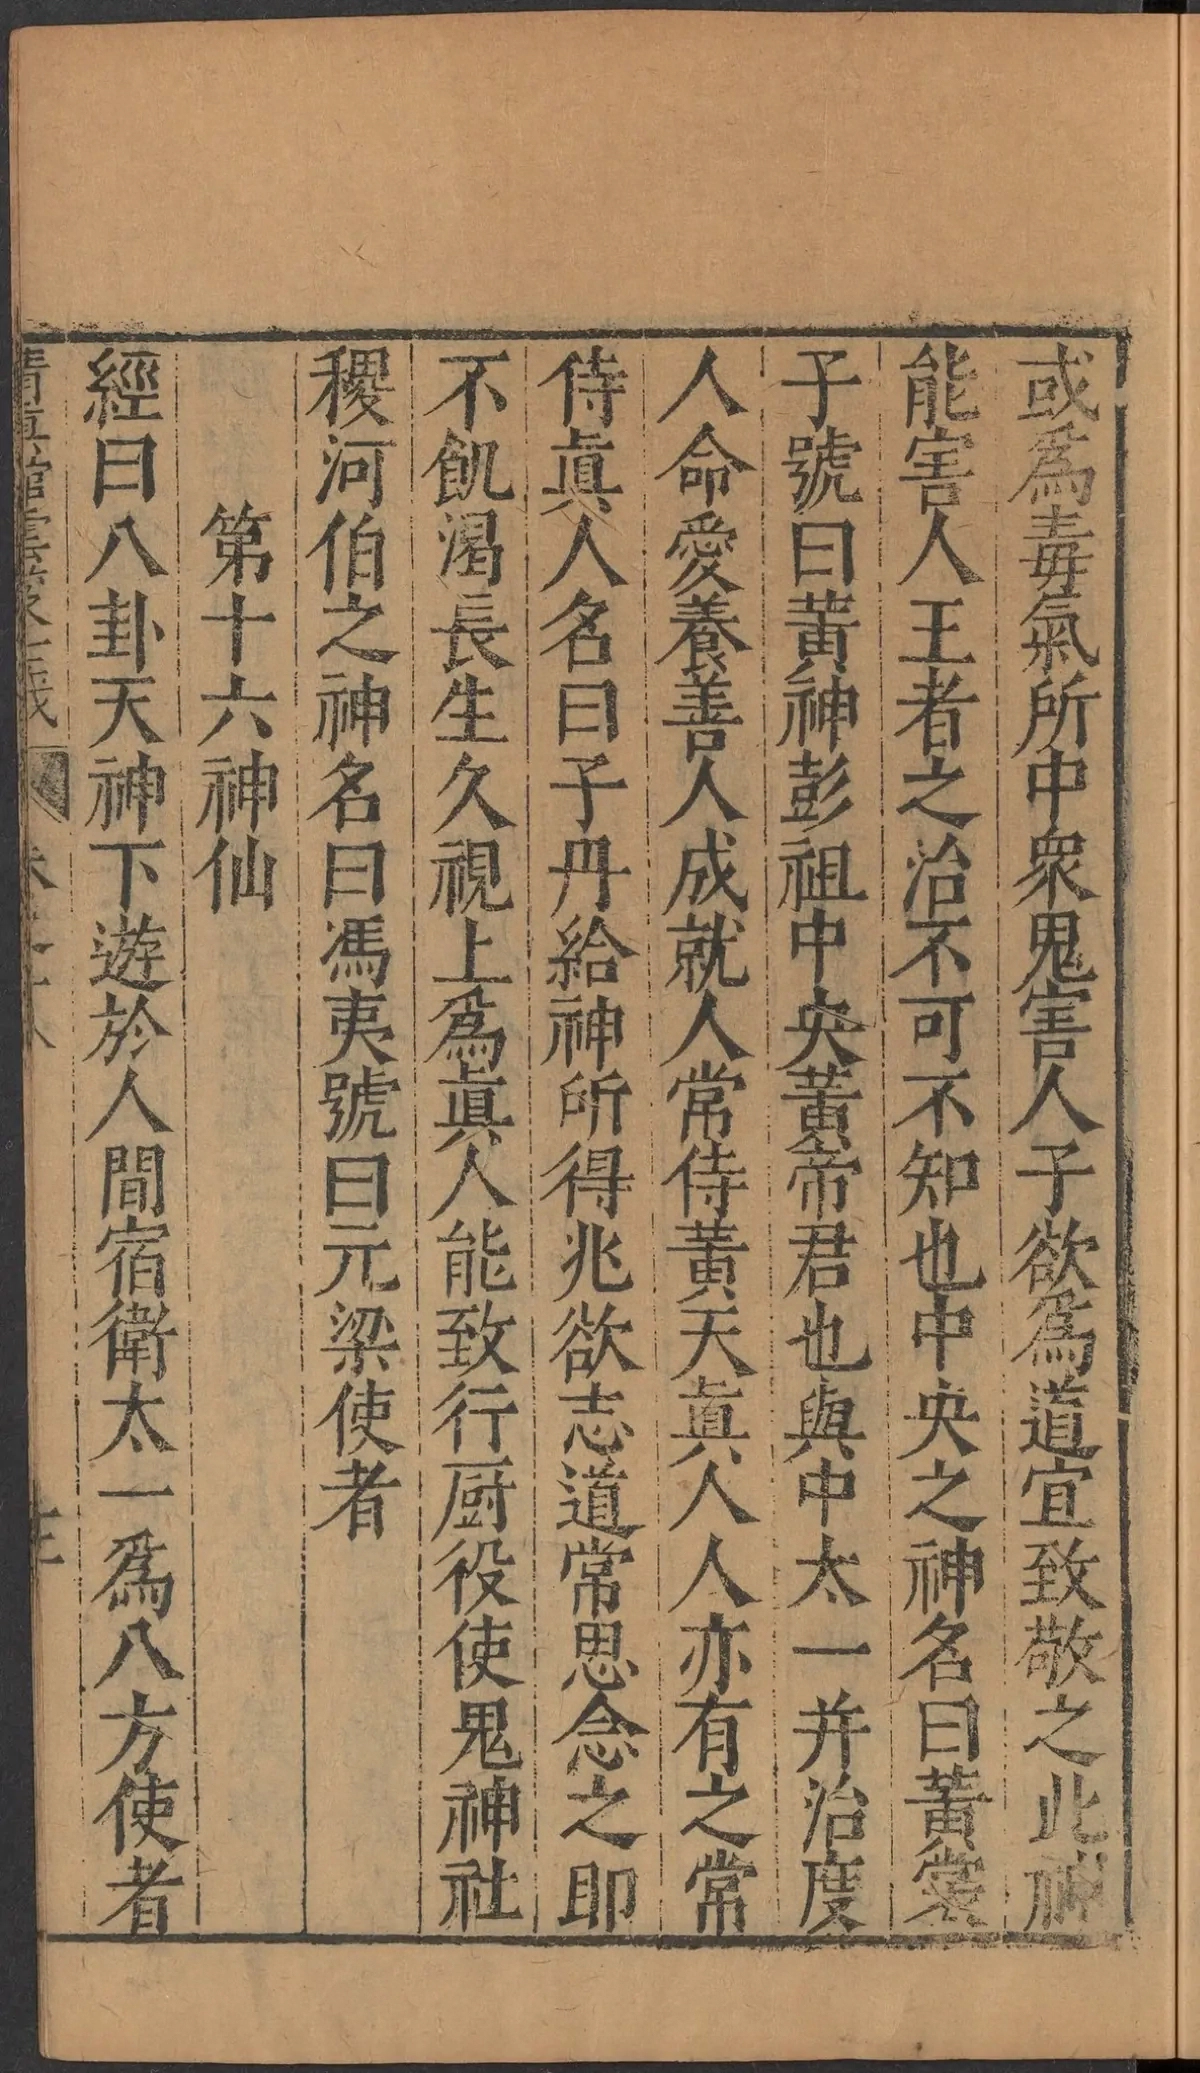 或爲毒氣所中衆鬼害人子欲爲道宜致敬之此神
能害人王者之治不可不知也中央之神名曰黃裳
子號曰黃神彭祖中央黃帝君也與中太一并治度
人命愛養善人成就人常侍黃天真人人亦有之常
侍眞人名曰子丹給神所得兆欲志道常思念之即
不飢渴長生久視上爲眞人能致行厨役使鬼神社
稷河伯之神名曰馮夷號曰元梁使者
第十六神仙
經曰八卦天神下遊於人間宿衛太一爲八方使者
清真館雲笈七籤